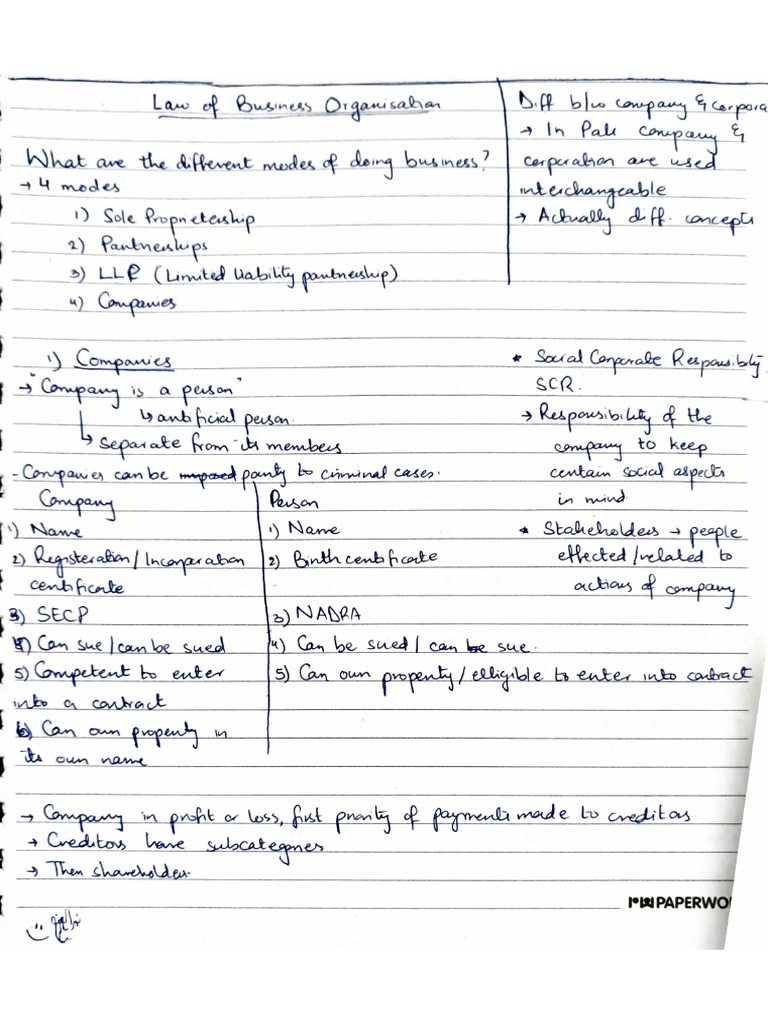 Law of Business Organisation
What are the different modes of doing business?
→ 4 modes
1) Sole Proprietership
2) Partnerships
3) LLP (Limited liability partnership)
4) Companies
Diff b/w company & corpora
→ In Pak company &
corporation are used
interchangeable
→ Actually diff. concepts
1) Companies
→ "Company is a person"
↳ antificial person.
↳ separate from its members
- Companies can be party to criminal cases.
* Social Corporate Responsiblity
SCR.
→ Responsibility of the
company to keep
certain social aspects
in mind
* Stakeholders → people
effected/related to
actions of company
Company
1) Name
2) Registeration / Incorporation
certificate
3) SECP
4) Can sue / can be sued
5) Competent to enter
into a contract
6) Can own property in
its own name
Person
1) Name
2) Birth certificate
3) NADRA
4) Can be sued / can sue.
5) Can own property / elligible to enter into contract
→ Company in profit or loss, first priority of payments made to creditors
→ Creditors have subcategories
→ Then shareholders.
PAPERWO